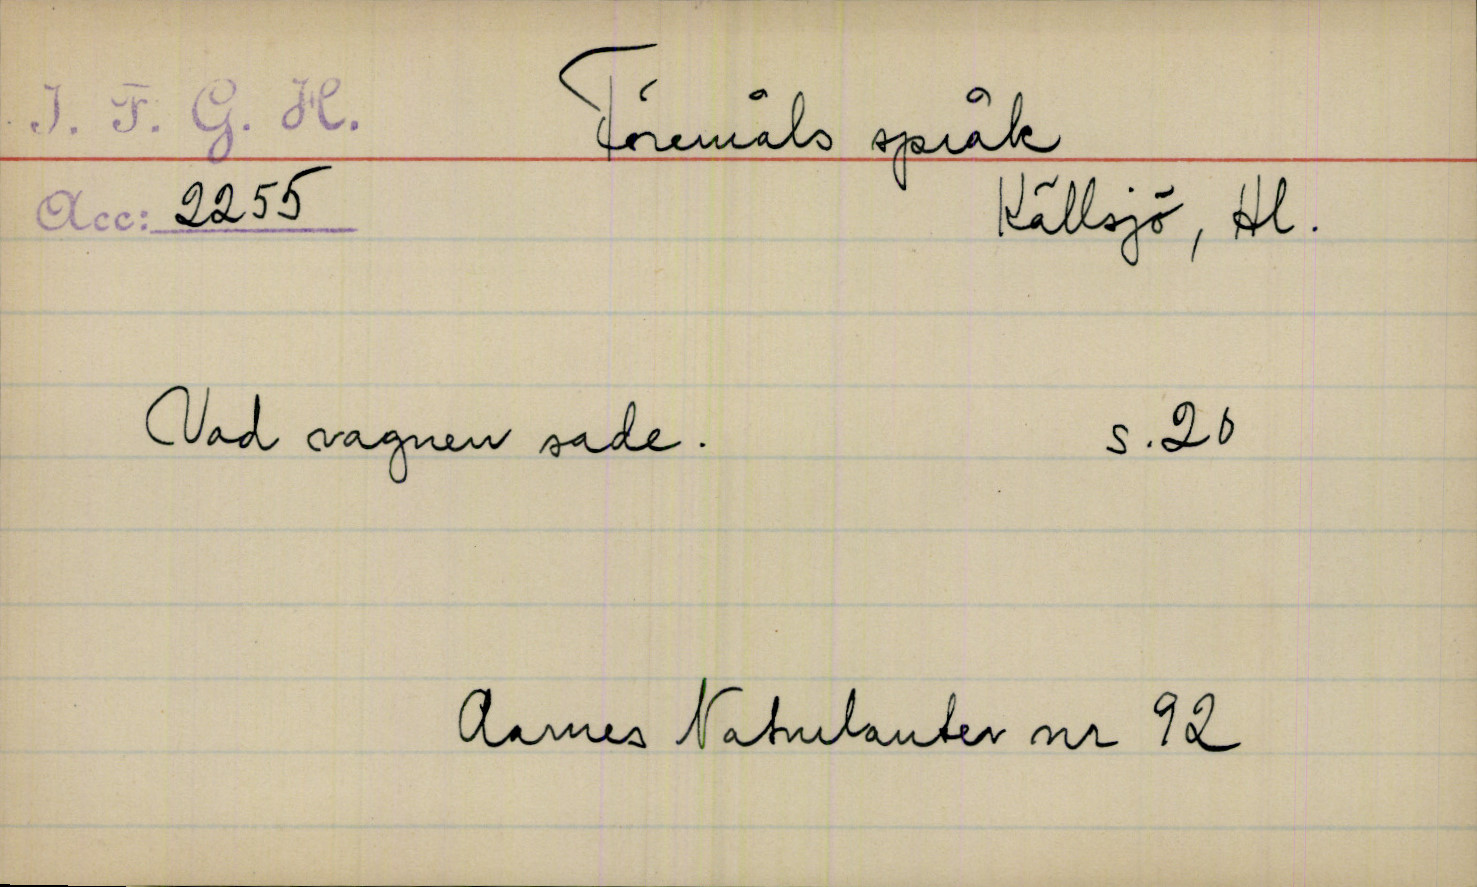 I. F. G. H.
Föremåls språk
Acc: 2255
Källsjö, Hl.
Vad vagnen sade. s. 20
Aarnes Naturlauten nr 92